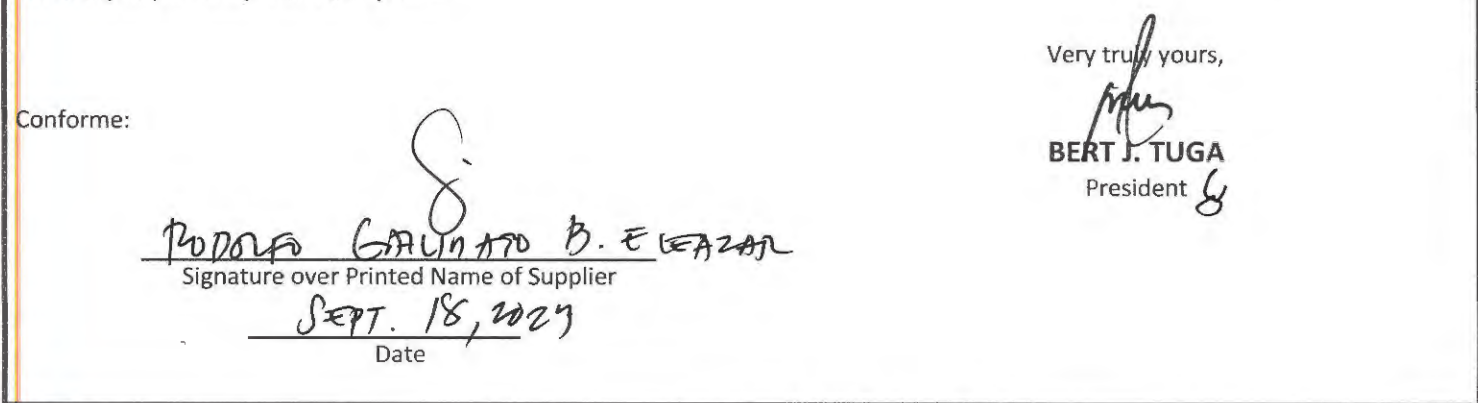 Very truly yours,
BERT J. TUGA
President
Conforme:
RODOLFO GALINATO B. ELEAZAR
Signature over Printed Name of Supplier
SEPT. 18, 2024
Date